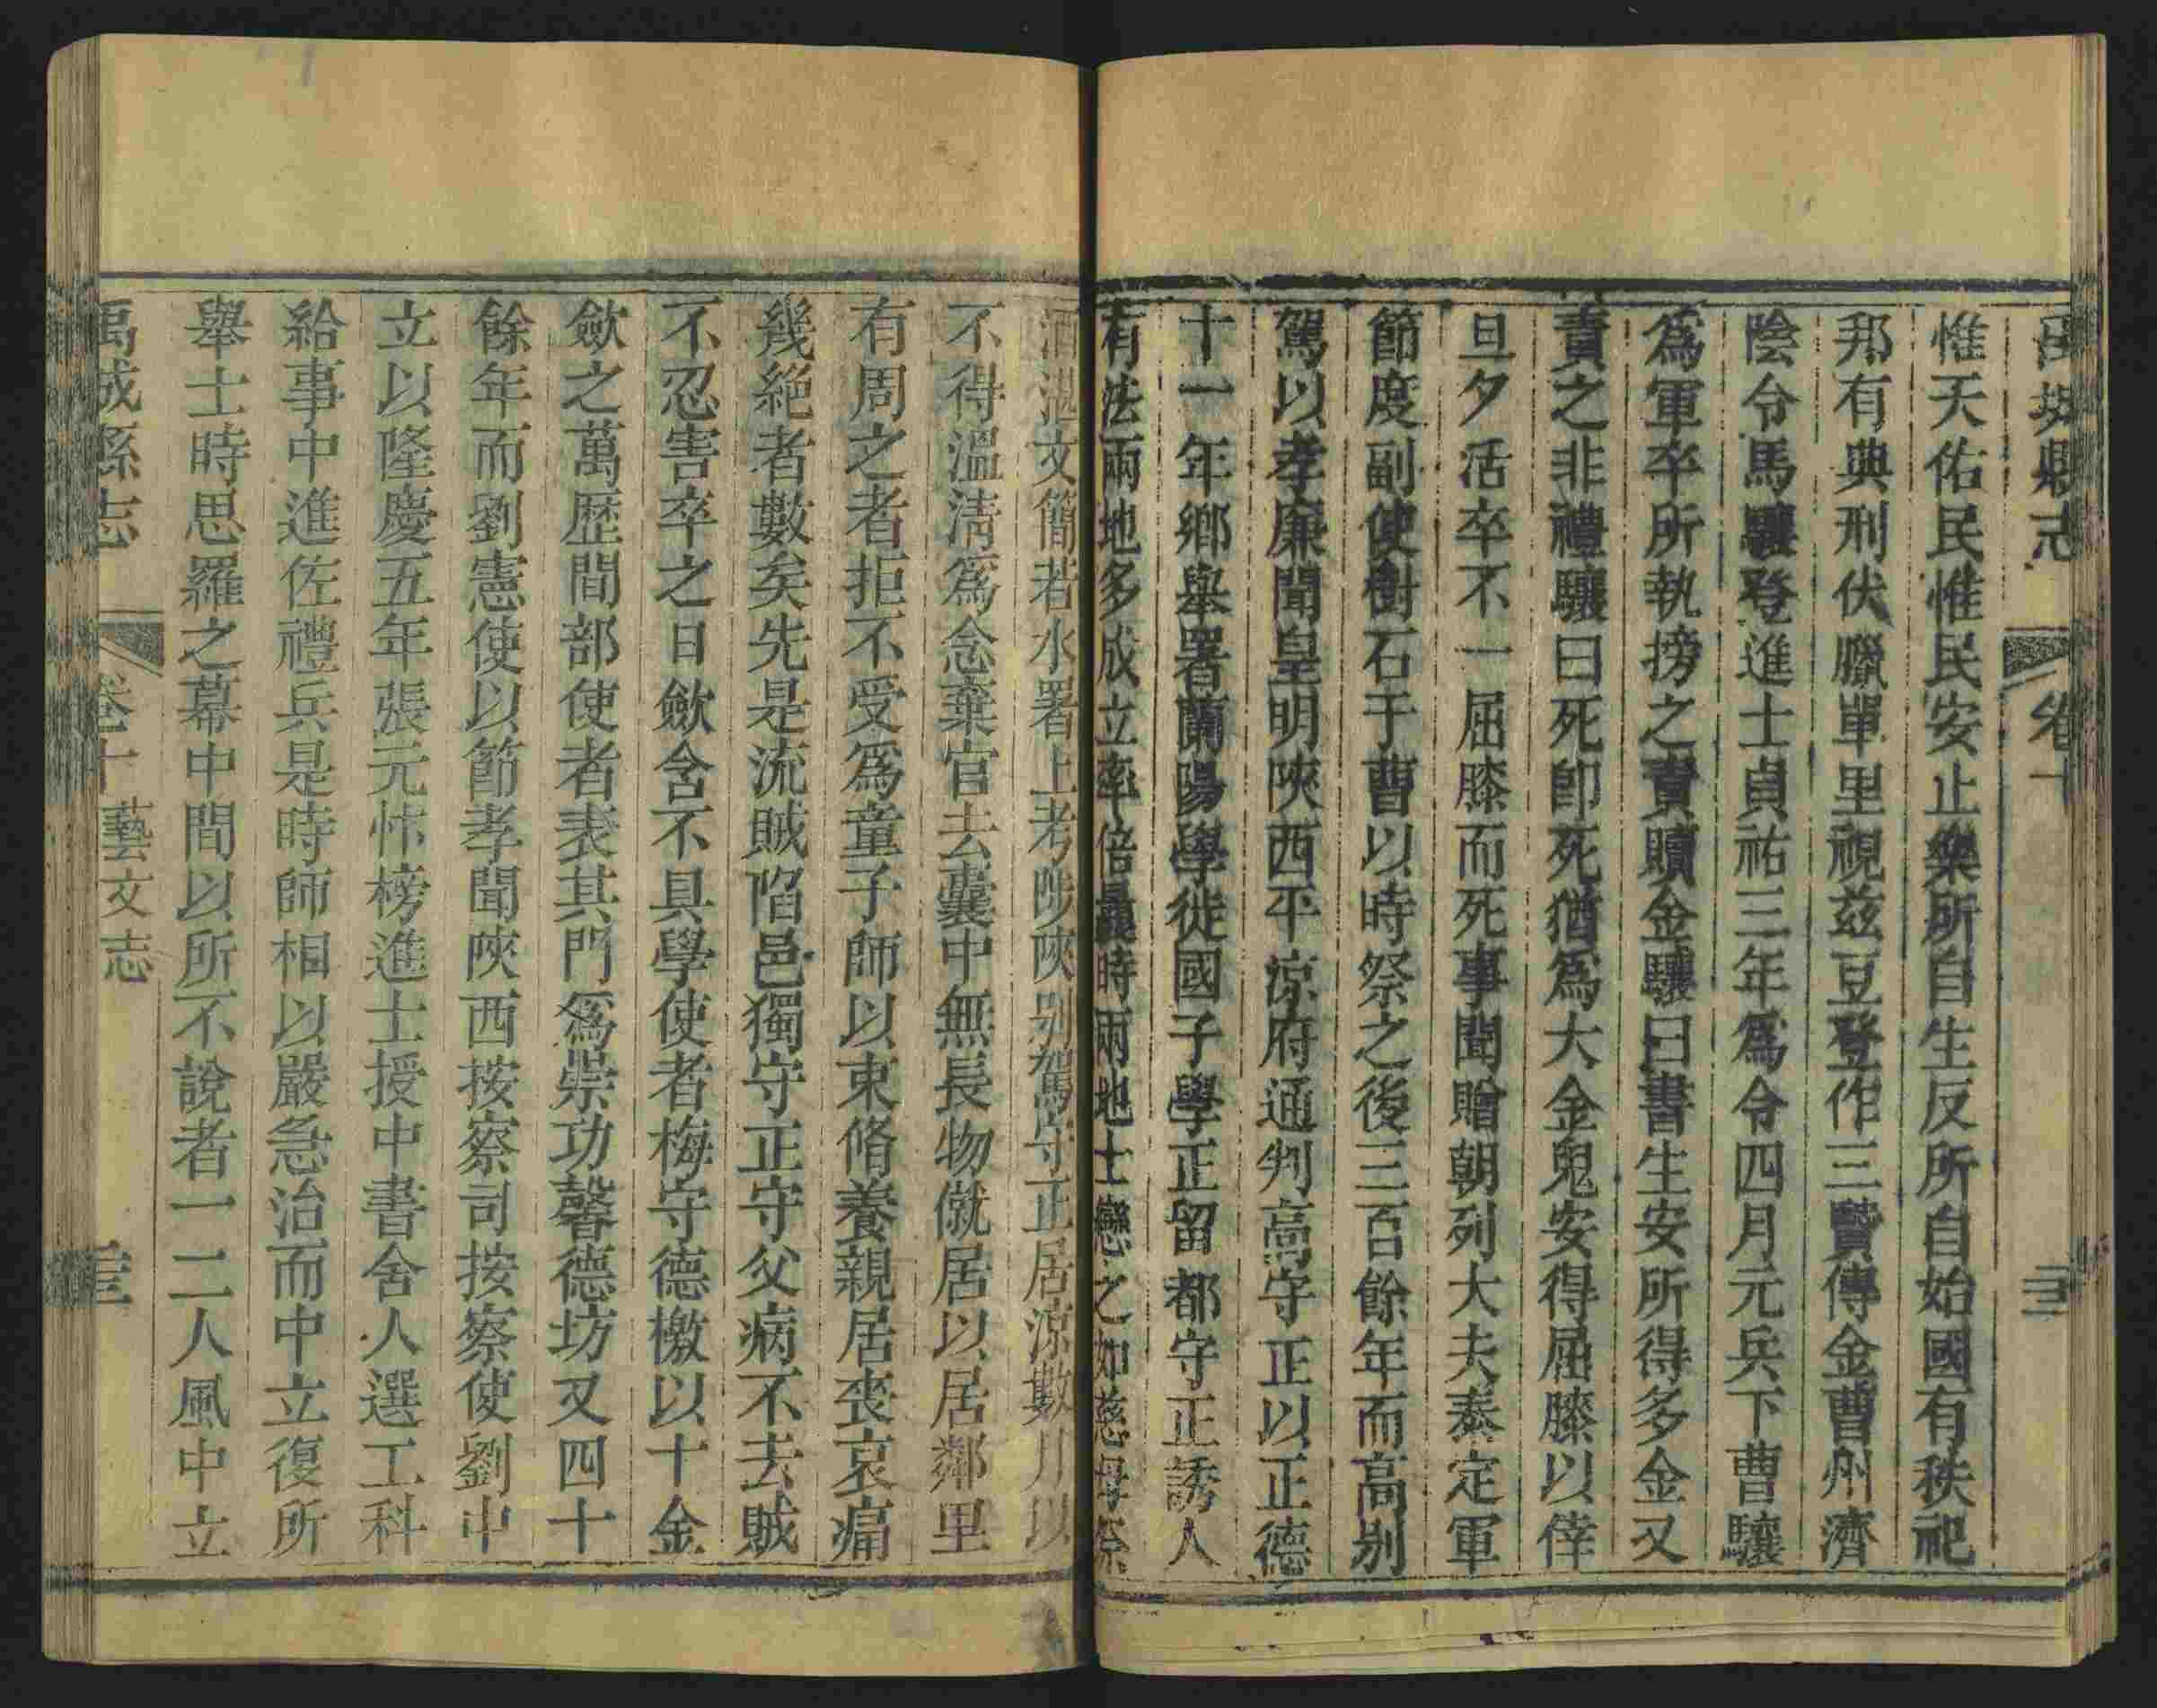 禹城縣志 卷十
惟天佑民惟民安止樂所自生反所自始國有秩祀
邦有典刑伏臘單里視茲豆登作三賢傳金曹州濟
陰令馬驤登進士貞祐三年爲令四月元兵下曹驤
爲軍卒所執搒之責贖金驤曰書生安所得多金又
責之非禮驤曰死即死猶爲大金鬼安得屈膝以倖
旦夕活卒不一屈膝而死事聞贈朝列大夫泰定軍
節度副使樹石于曹以時祭之後三百餘年而高别
駕以孝廉聞皇明陝西平涼府通判高守正以正德
十一年鄉舉署蘭陽學徙國子學正留都守正誘人
有法兩地多成立率倍曩時兩地士戀之如慈母
文簡若水署上考陟陝别駕守正居涼數月以
不得溫凊爲念棄官去囊中無長物僦居以居鄰里
有周之者拒不受爲童子師以束脩養親居喪哀痛
幾絕者數矣先是流賊陷邑獨守正守父病不去賊
不忍害卒之日歛含不具學使者梅守德檄以十金
歛之萬歷間部使者表其門爲崇功馨德坊又四十
餘年而劉憲使以節孝聞陝西按察司按察使劉中
立以隆慶五年張元忭榜進士授中書舍人選工科
給事中進佐禮兵是時師相以嚴急治而中立復所
舉士時思羅之幕中間以所不說者一二人風中立
禹城縣志 卷十藝文志